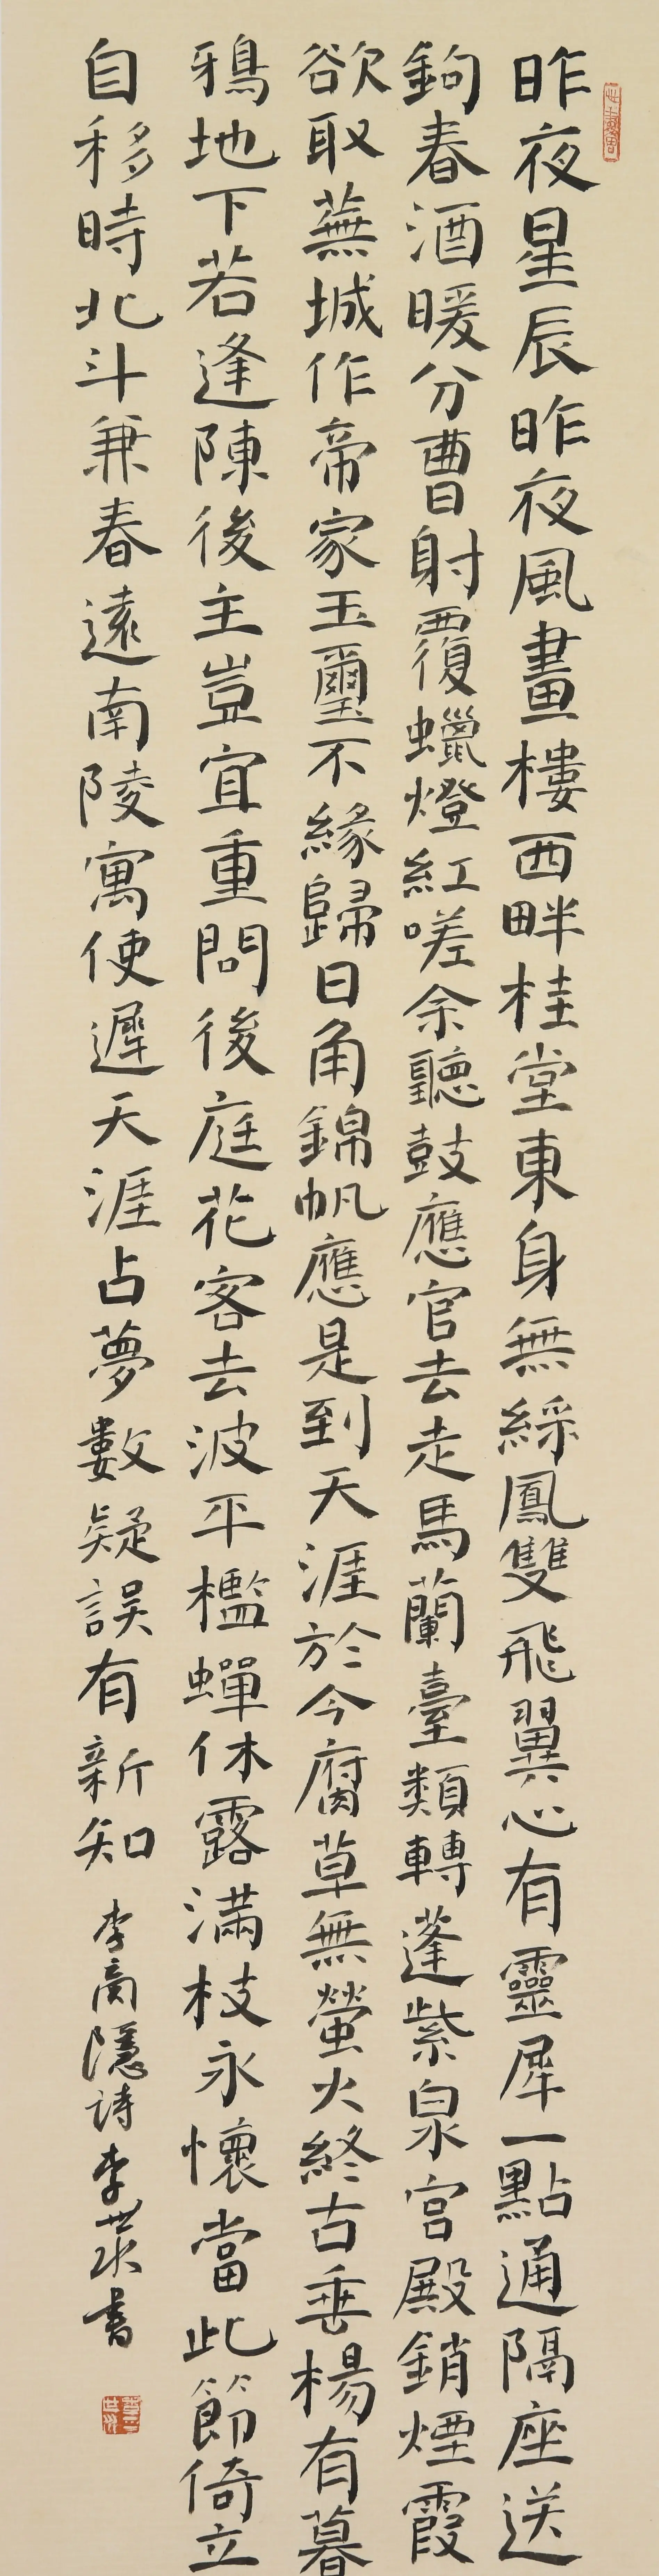 昨夜星辰昨夜風畫樓西畔桂堂東身無綵鳳雙飛翼心有靈犀一點通隔座送
鉤春酒暖分曹射覆蠟燈紅嗟余聽鼓應官去走馬蘭臺類轉蓬紫泉宮殿銷煙霞
欲取蕪城作帝家玉璽不緣歸日角錦帆應是到天涯於今腐草無螢火終古垂楊有暮
鴉地下若逢陳後主豈宜重問後庭花客去波平檻蟬休露滿枝永懷當此節倚立
自移時北斗兼春遠南陵寓使遲天涯占夢數疑誤有新知 李商隱詩 李書